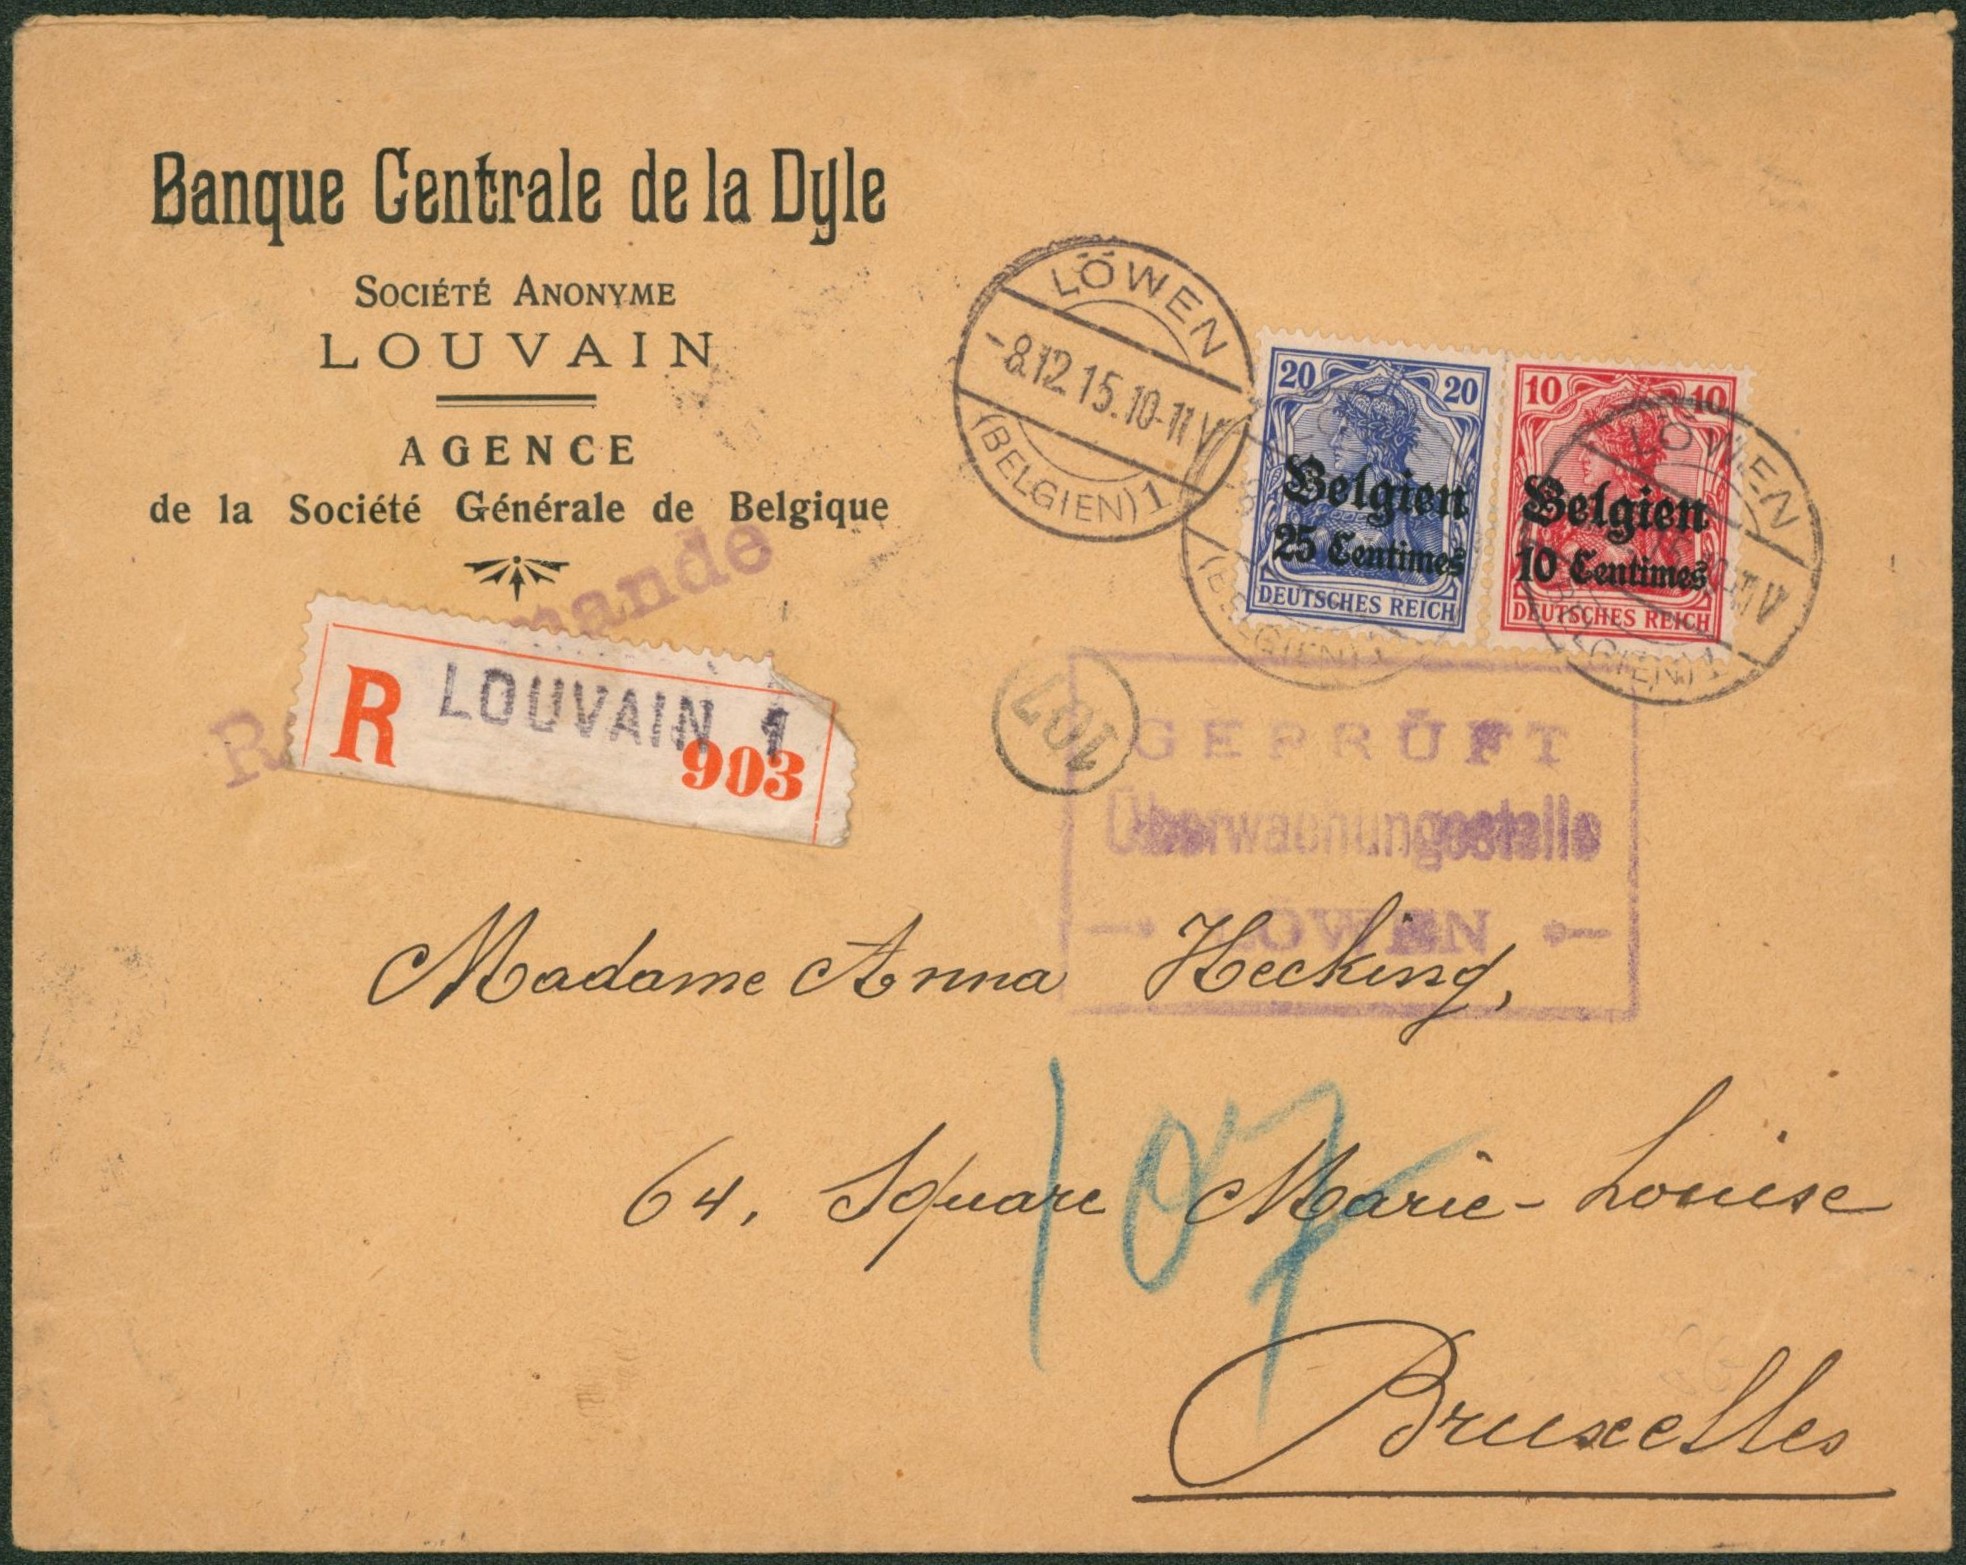 Banque Centrale de la Dyle
SOCIÉTÉ ANONYME
LOUVAIN
AGENCE
de la Société Générale de Belgique
mande
R
R LOUVAIN 1
903
LÖWEN
-8.12.15.10-11V
(BELGIEN) 1
20 20
Belgien
25 Centimes
DEUTSCHES REICH
10 10
Belgien
10 Centimes
DEUTSCHES REICH
LÖWEN
(BELGIEN) 1
107
GEPRÜFT
Überwachungsstelle
LÖWEN
Madame Anna Hecking,
64, Square Marie-Louise
107
Bruxelles